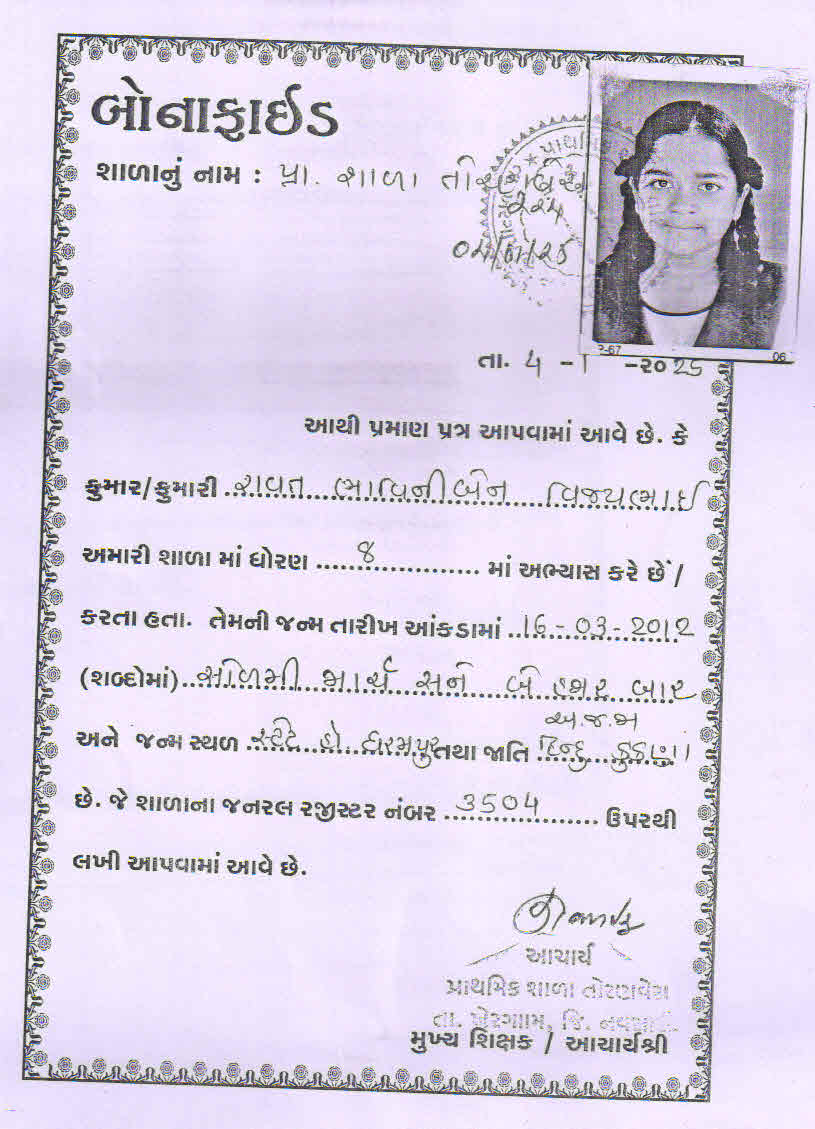 બોનાફાઈડ
શાળાનું નામ : પ્રા. શાળા તોરણવેરા
૨૨૫
04/01/25
2-67 06
તા. 4 - 1 -૨૦ 25
આથી પ્રમાણ પત્ર આપવામાં આવે છે. કે
કુમાર/કુમારી રાવત ભાવિનીબેન વિજયભાઈ
અમારી શાળા માં ધોરણ 8 માં અભ્યાસ કરે છે /
કરતા હતા. તેમની જન્મ તારીખ આંકડામાં 16-03-2012
(શબ્દોમાં) સોળમી માર્ચ સને બે હજાર બાર
અ.જ.જા
અને જન્મ સ્થળ સ્ટેટ હો. ધરમપુર તથા જાતિ હિન્દુ કુકણા
છે. જે શાળાના જનરલ રજીસ્ટર નંબર 3504 ઉપરથી
લખી આપવામાં આવે છે.
આચાર્ય
પ્રાથમિક શાળા તોરણવેરા
તા. ખેરગામ, જિ. નવસારી
મુખ્ય શિક્ષક / આચાર્યશ્રી